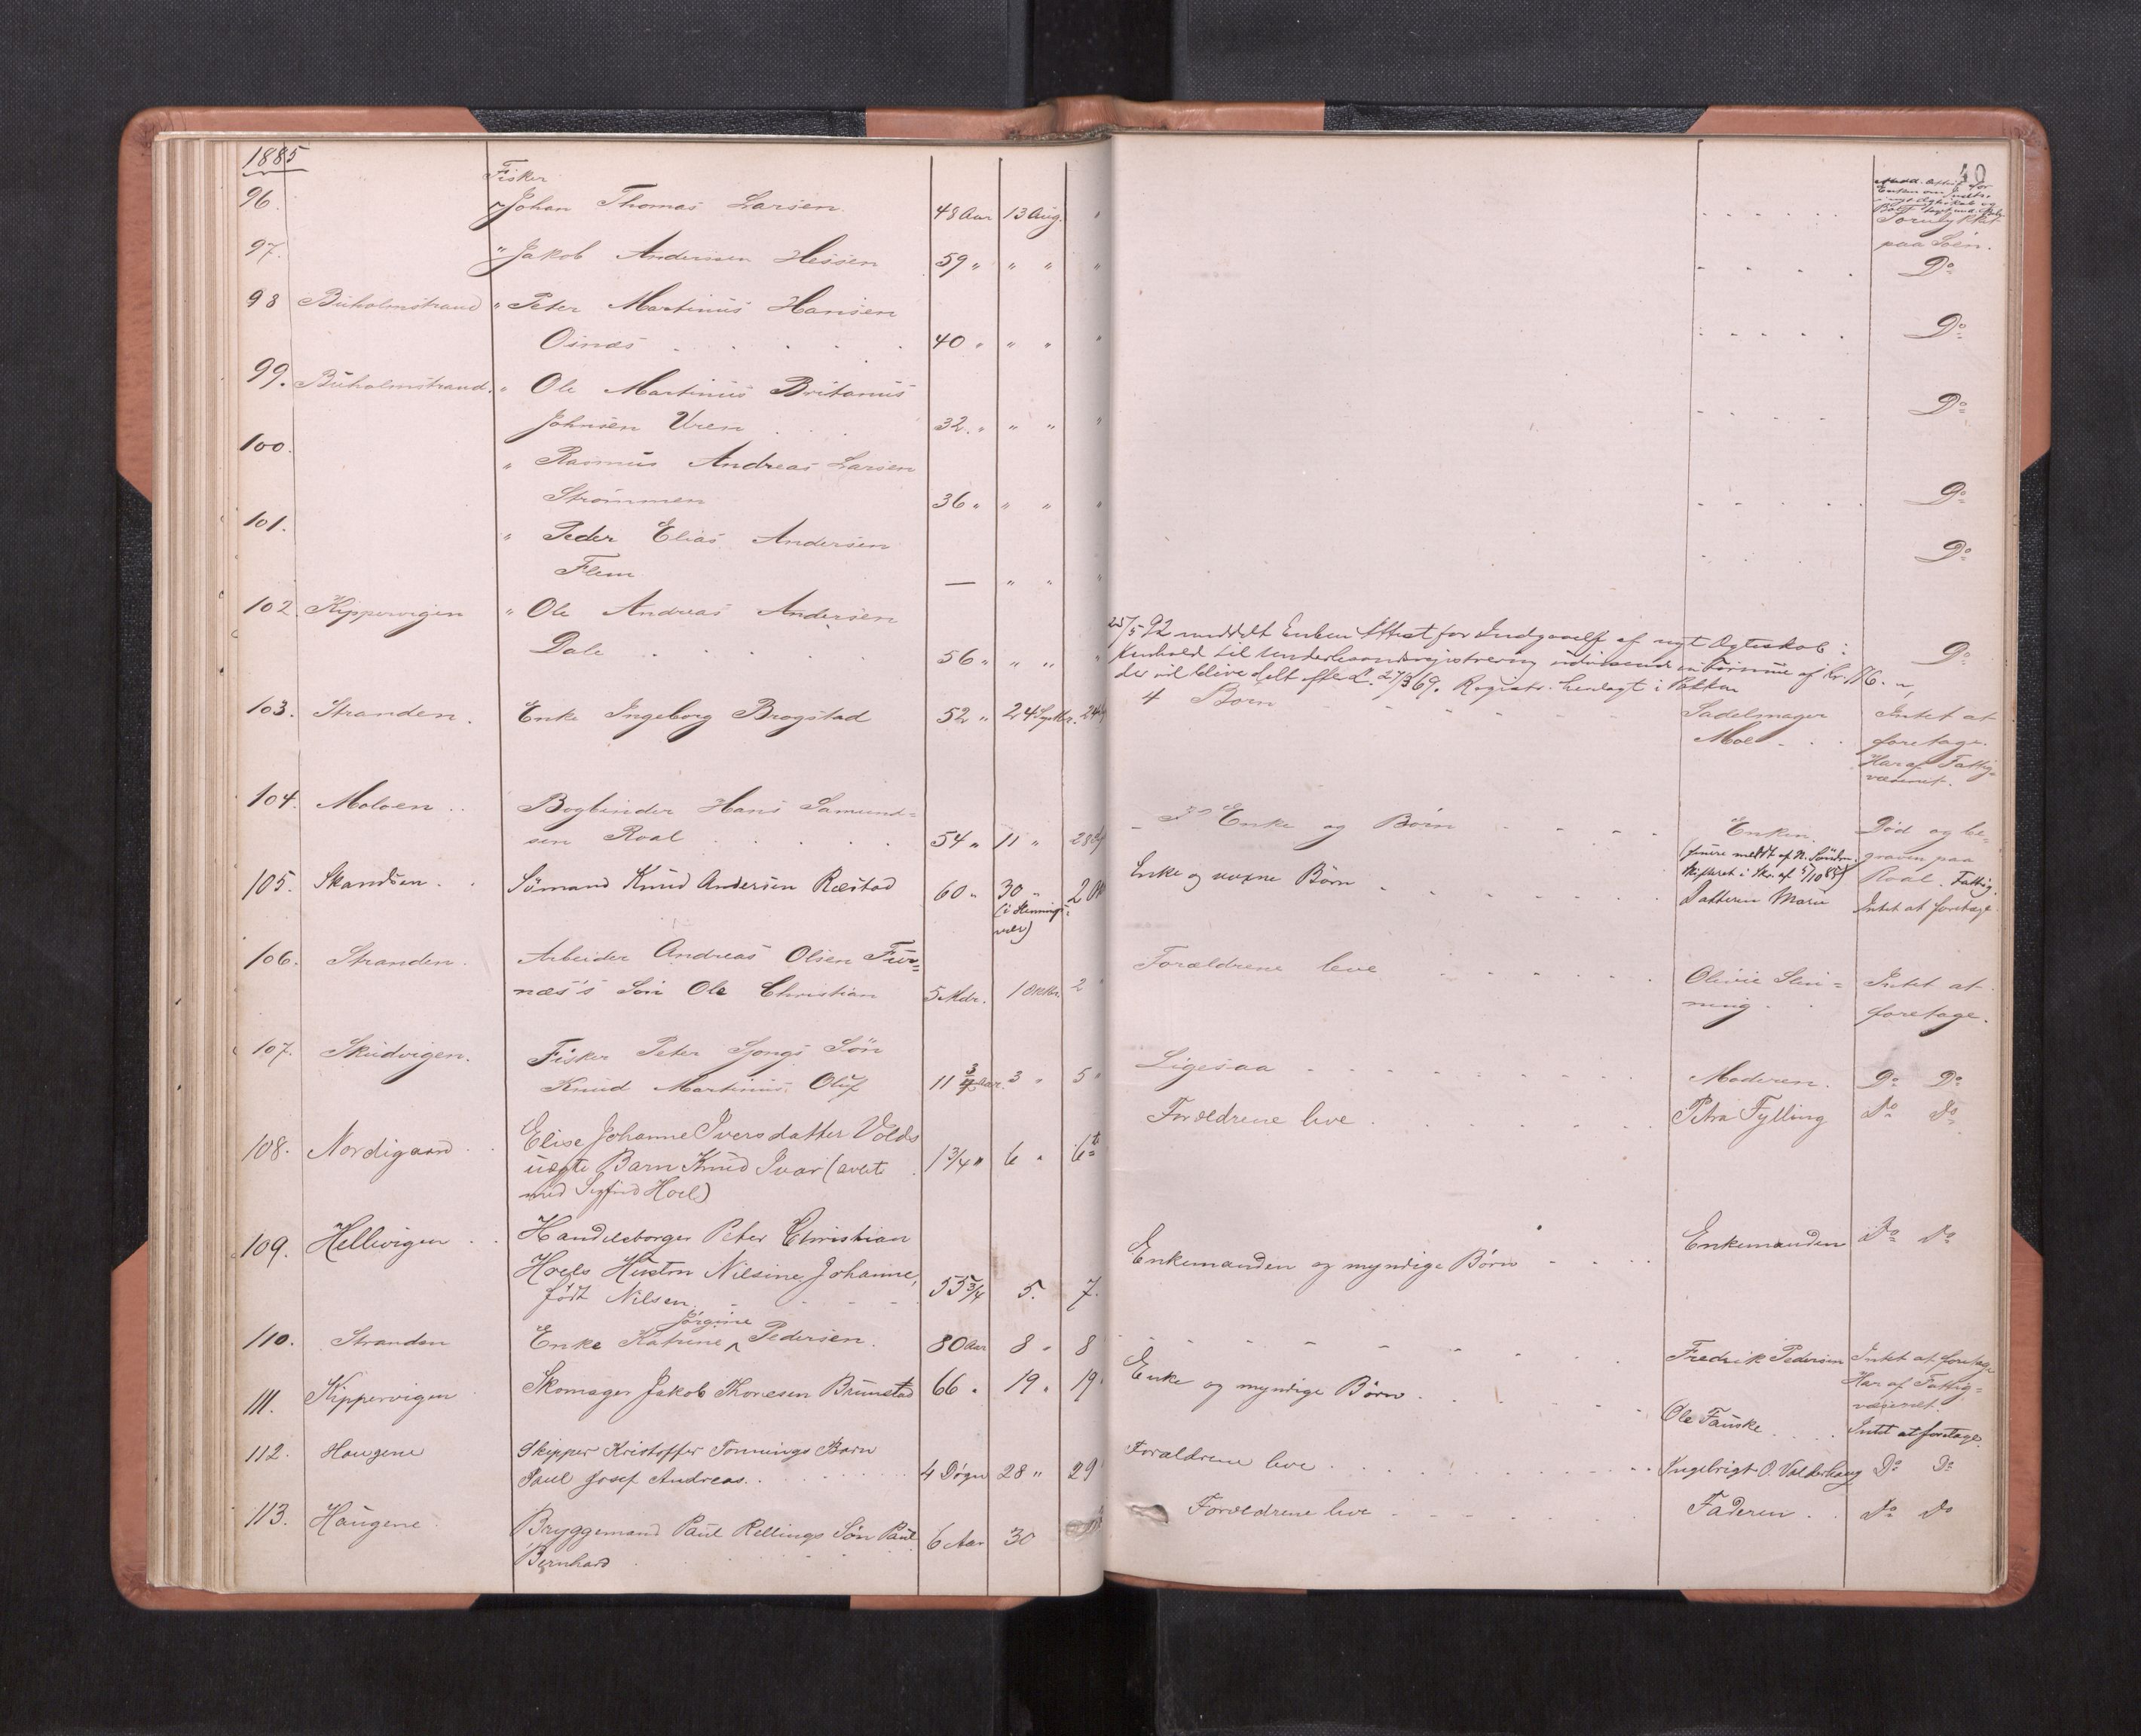 1885
40
Fisker
96. " Johan Thomas Larsen 48 Aar 13 Aug. "
Forulykket
paa Søen.
97. " Jakob Andersen Hessen 59 " " " " Do
98 Buholmstrand " Peter Martinus Hansen
Osnæs 40 " " " " Do
99. Buholmstrand. " Ole Martinus Britanus
Johnsen Uren 32. " " " " Do
100. " Rasmus Andreas Larsen
Strømmen 36 " " " " Do
101. " Peder Elias Andersen
Flem — " " " Do
102. Kippervigen " Ole Andreas Andersen
Dale 56 " " " " Do
25/5 92 meddelt Enken Attest for Indgaaelse af nyt Ægteskab i
Henhold til Underhaandsregistrering udvisende en Formue af Kr. 116. -,
der vil blive delt efter L. 27/3 69. Registr. henlagt i Pakken
103. Stranden. Enke Ingeborg Brogstad 52 " 24 Septbr. 24 4 Børn Sadelmager Intet at
Moe foretage.
Har af Fattig-
væsenet.
104. Moloen Bogbinder Hans Samund-
sen Roal 54 " 11 " 28 Enke og Børn Enken. Død og be-
graven paa
Roal. Fattig.
105. Skandsen. Sömand Knud Andersen Ræstad 60 " 30 " 2 Enke og voxne Börn Datteren Marie Intet at foretage.
(i Henningsvær)
106. Stranden. Arbeider Andreas Olsen Fur-
næs's Søn Ole Christian 5 Mdr. 1 Oktbr. 2 " Forældrene leve Olivie Slin- Intet at
ning foretage.
107. Skudvigen. Fisker Peter Sjongs Søn
Knud Martinus Oluf 11 3/4 Aar. 3 " 5 " Ligesaa Moderen. Do Do
108. Nordigaard Elise Johanne Iversdatter Volds
uægte Barn Knud Ivar (avlet
med Sigfrid Hoel) 1 3/4 " 6 " 6te Forældrene leve Petra Fylling Do Do
109. Hellevigen Handelsborger Peter Christian
Hoels Hustru Nilsine Johanne,
født Nilsen 55 3/4 5. 7. Enkemanden og myndige Børn Enkemanden Do Do
Jørgine
110. Stranden Enke Katrine ^ Pedersen. 80 Aar 8 " 8 Fredrik Pedersen Intet at foretage
Har af Fattig-
væsenet.
111. Kippervigen Skomager Jakob Thoresen Brunstad 66 " 19 " 19 " Enke og myndige Børn. Ole Fauske Intet at foretage.
112. Haugene Skipper Kristoffer Tonnings Barn
Paul Josef Andreas. 4 Døgn 28 " 29 " Forældrene leve Ingebrigt O. Valderhaug Do Do
113. Haugene Bryggemand Paul Rellings Søn Paul
Bernhard 6 Aar 30 Forældrene leve Faderen. Do Do